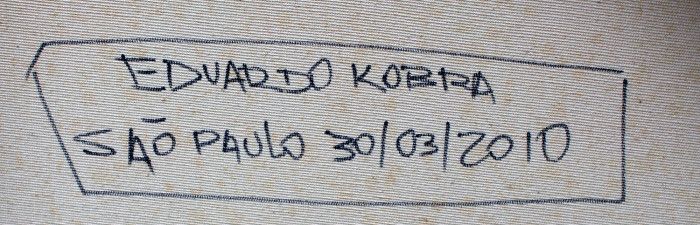 EDUARDO KOBRA
SÃO PAULO 30/03/2010